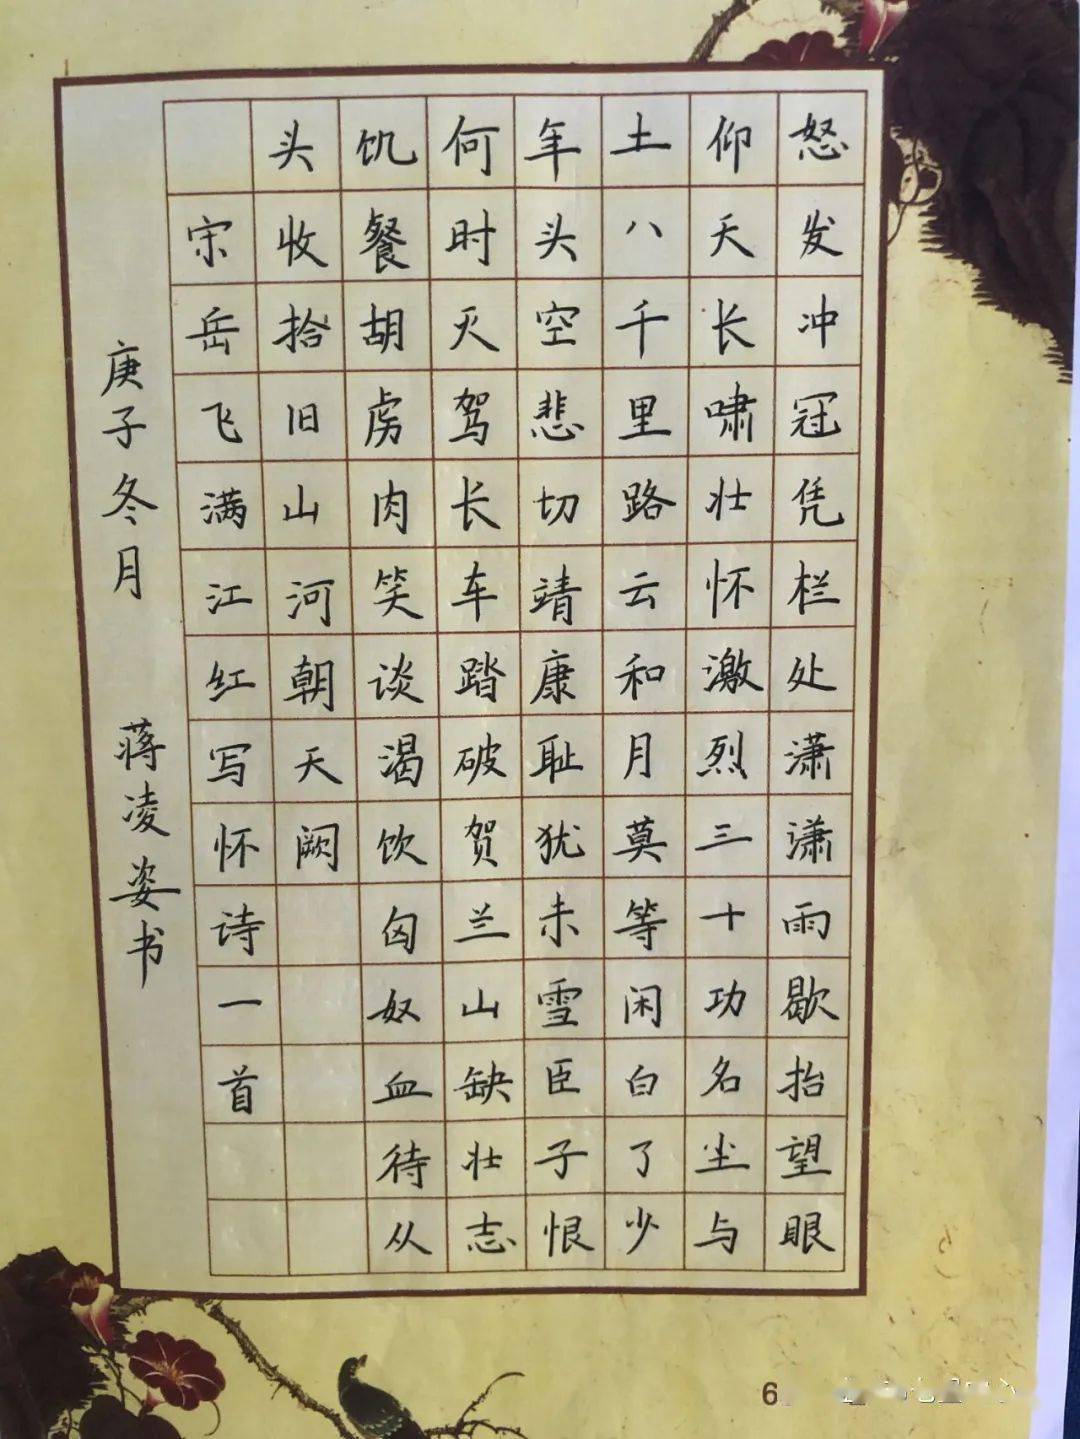 怒发冲冠凭栏处潇潇雨歇抬望眼
仰天长啸壮怀激烈三十功名尘与
土八千里路云和月莫等闲白了少
年头空悲切靖康耻犹未雪臣子恨
何时灭驾长车踏破贺兰山缺壮志
饥餐胡虏肉笑谈渴饮匈奴血待从
头收拾旧山河朝天阙
宋岳飞满江红写怀诗一首
庚子冬月 蒋凌姿书
6